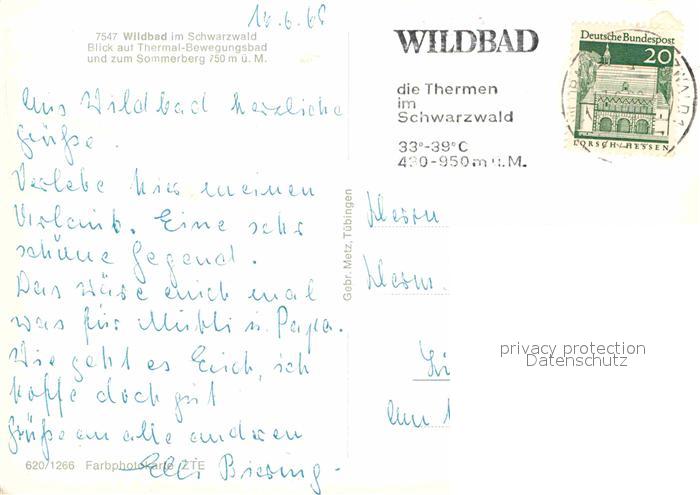 18.6.68
7547 Wildbad im Schwarzwald
Blick auf Thermal-Bewegungsbad
und zum Sommerberg 750 m ü. M.
Aus Wildbad herzliche
Grüße.
Verlebe hier meinen
Urlaub. Eine sehr
schöne Gegend.
Das wäre auch mal
was für Mutti u. Papa.
Wie geht es Euch, ich
hoffe doch gut
Grüße an alle andren
Elli Biesing
620/1266 Farbphotokarte ZTE
Gebr. Metz, Tübingen
WILDBAD
die Thermen
im
Schwarzwald
33°-39°C
430-950 m ü. M.
Deutsche Bundespost
20
LORSCH/HESSEN
Herrn
Herm.
privacy protection
Datenschutz